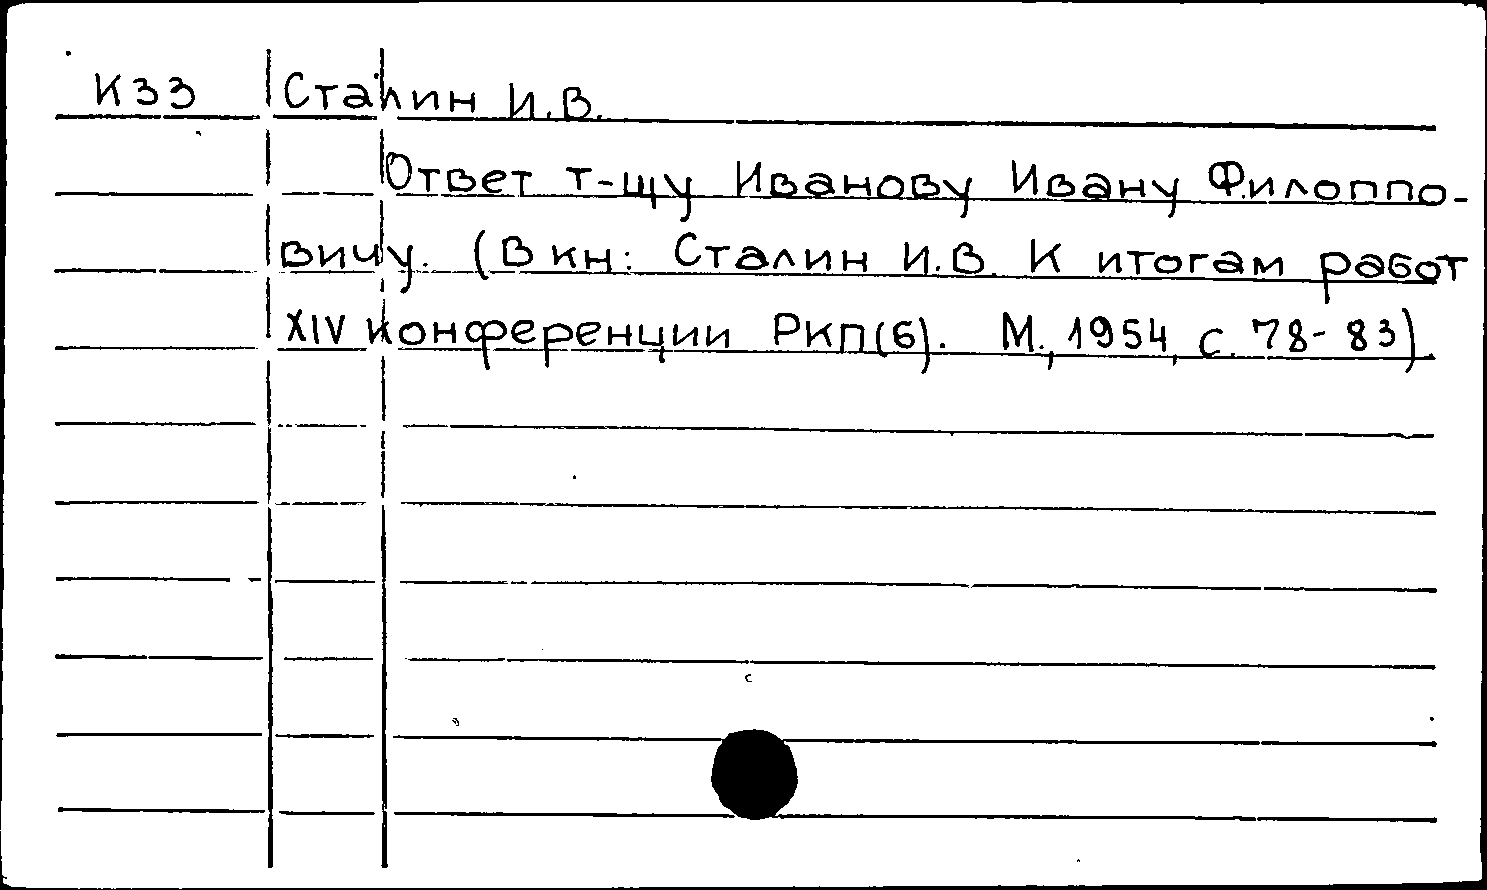 К33 Сталин И.В.
Ответ т-щу Иванову Ивану Филоппо-
вичу. (В кн: Сталин И.В. К итогам работ
XIV конференции РКП(б). М., 1954, с. 78-83)